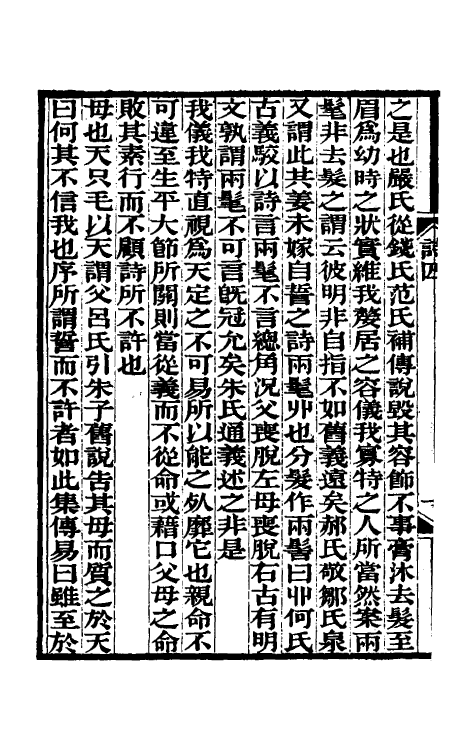 之是也嚴氏從錢氏范氏補傳說毀其容飾不事膏沐去髮至
眉爲幼時之狀實維我嫠居之容儀我寡特之人所當然案兩
髦非去髮之謂云彼明非自指不如舊義遠矣郝氏敬鄒氏泉
又謂此共姜未嫁自誓之詩兩髦丱也分髮作兩髻曰丱何氏
古義駁以詩言兩髦不言總角況父喪脫左母喪脫右古有明
文孰謂兩髦不可言旣冠允矣朱氏通義述之非是
我儀我特直視爲天定之不可易所以能之死靡它也親命不
可違至生平大節所關則當從義而不從命或藉口父母之命
敗其素行而不顧詩所不許也
母也天只毛以天謂父呂氏引朱子舊說告其母而質之於天
曰何其不信我也序所謂誓而不許者如此集傳易曰雖至於
詩四
一